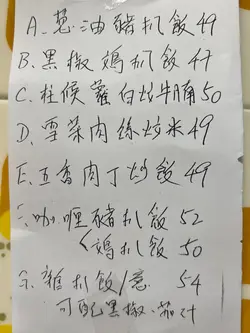 A. 葱油豬扒飯 49
B. 黑椒鸡扒飯 47
C. 柱候蘿白炆牛腩 50
D. 雪菜肉絲炆米 49
E. 五香肉丁炒飯 49
咖喱豬扒飯 52
鸡扒飯 50
雜扒飯/意 54
可配黑椒、茄汁